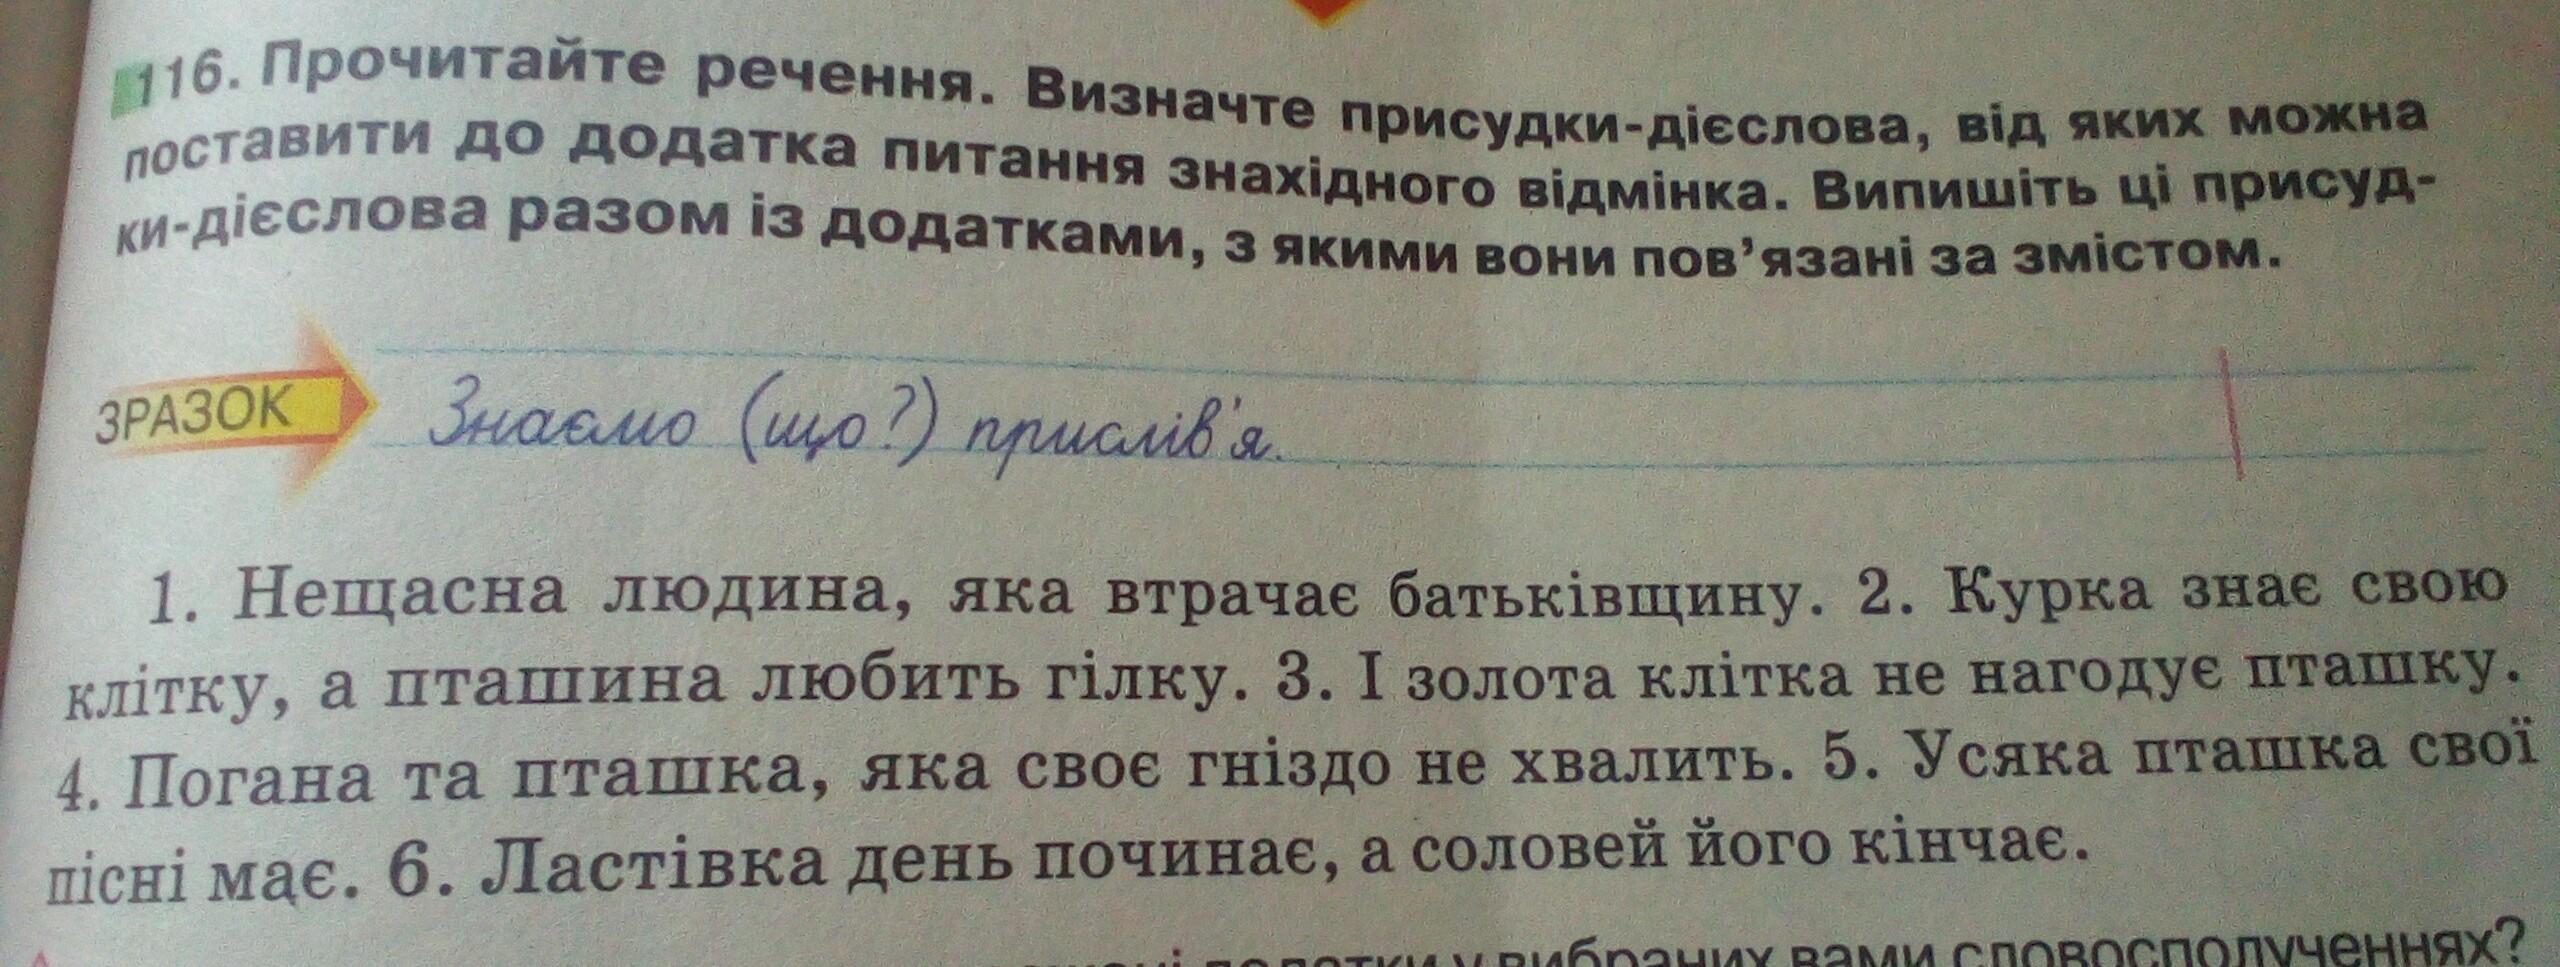 116. Прочитайте речення. Визначте присудки-дієслова, від яких можна
поставити до додатка питання знахідного відмінка. Випишіть ці присуд-
ки-дієслова разом із додатками, з якими вони пов’язані за змістом.
ЗРАЗОК
Знаємо (що?) прислів'я.
1. Нещасна людина, яка втрачає батьківщину. 2. Курка знає свою
клітку, а пташина любить гілку. 3. І золота клітка не нагодує пташку.
4. Погана та пташка, яка своє гніздо не хвалить. 5. Усяка пташка свої
пісні має. 6. Ластівка день починає, а соловей його кінчає.
додатки у вибраних вами словосполученнях?